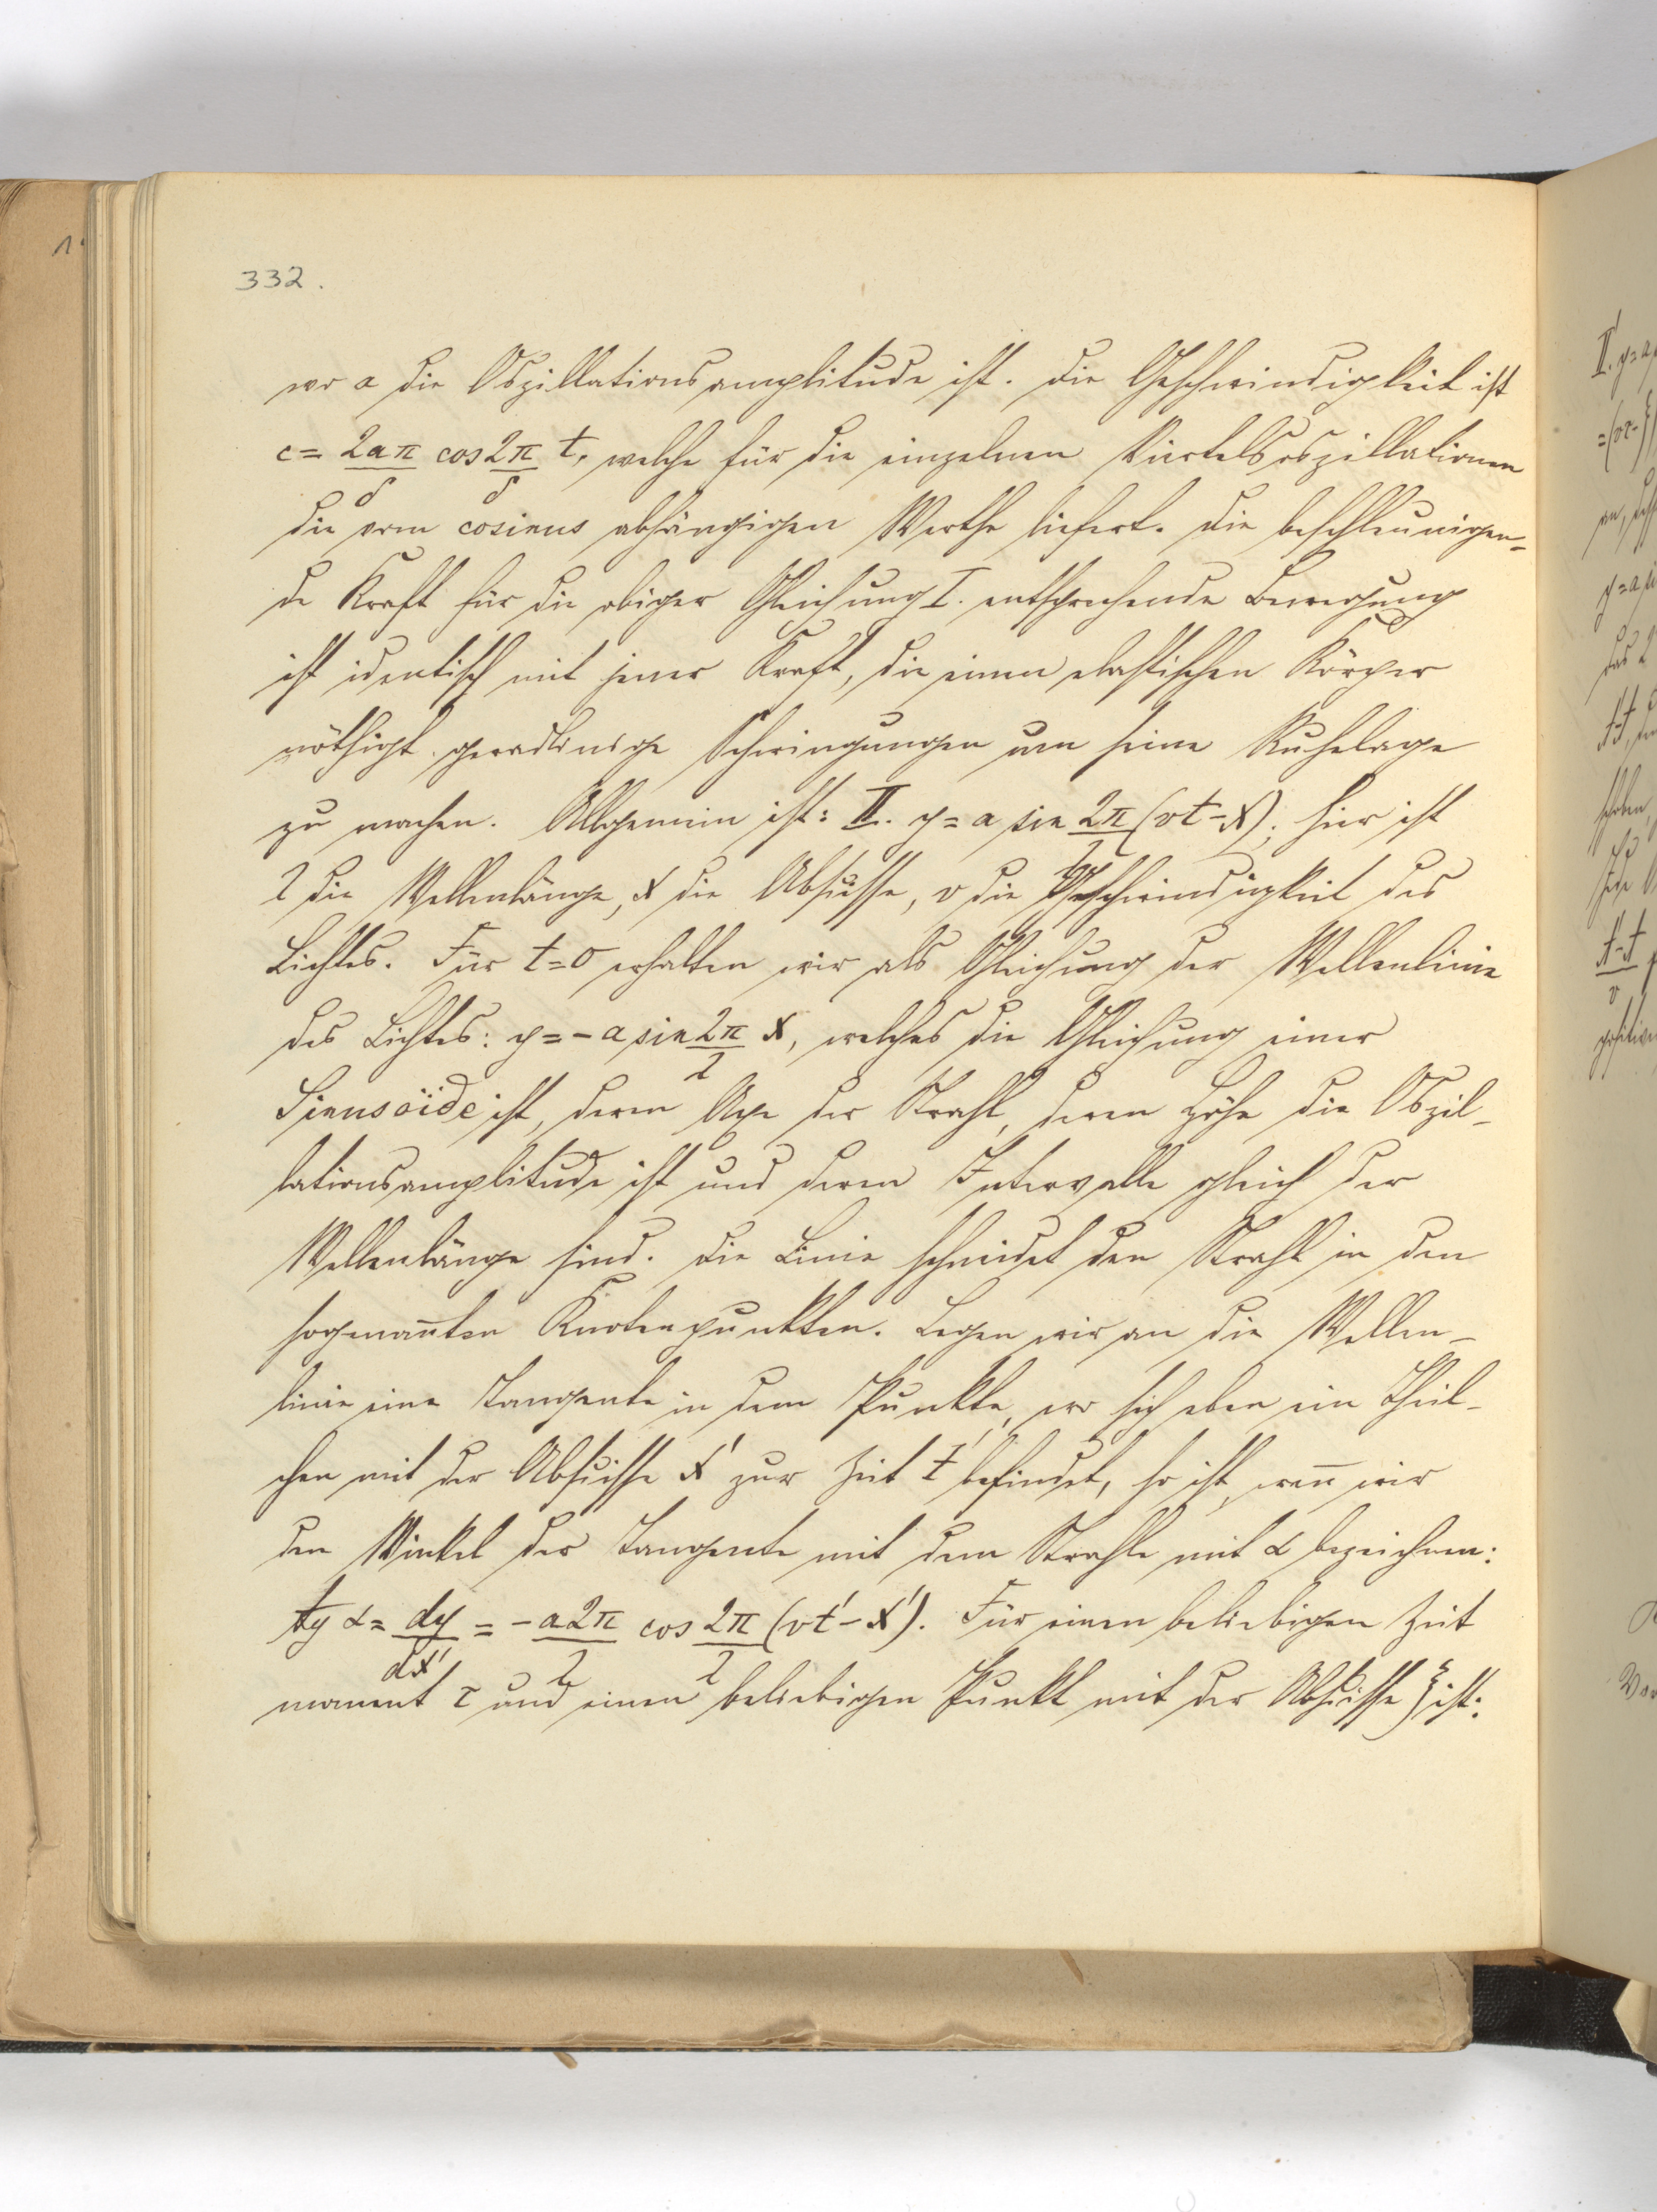 332.
wo a die Oszillationsamplitude ist. Die Geschwindigkeit ist
c = 2aπ/δ cos 2π/δ t, welche für die einzelnen Viertelsoszillationen
die vom cosinus abhängigen Werthe liefert. Die beschleunigen-
de Kraft für die obiger Gleichung I. entsprechende Bewegung
ist identisch mit jener Kraft, die einen elastischen Körper
nöthigt geradlinige Schwingungen um seine Ruhelage
zu machen. Allgemein ist: II. y = a sin 2π/l (vt - x); hier ist
l die Wellenlänge, x die Abscisse, v die Geschwindigkeit des
Lichtes. Für t = 0 erhalten wir als Gleichung der Wellenlinie
des Lichtes: y = - a sin 2π/l x, welches die Gleichung einer
Sinusoïde ist, deren Axe der Strahl, deren Höhe die Oszil-
lationsamplitude ist und deren Intervalle gleich der
Wellenlänge sind. Die Linie schneidet den Strahl in den
sogenan̄ten Knotenpunkten. Legen wir an die Wellen-
linie eine Tangente in dem Punkte, wo sich eben ein Theil-
chen mit der Abscisse x' zur Zeit t' befindet, so ist, wen̄ wir
den Winkel der Tangente mit dem Strahle mit α bezeichnen:
tg α = dy/dx' = - a2π/l cos 2π/l (vt' - x'). Für einen beliebigen Zeit
moment τ und einen beliebigen Punkt mit der Abscisse ξ ist: